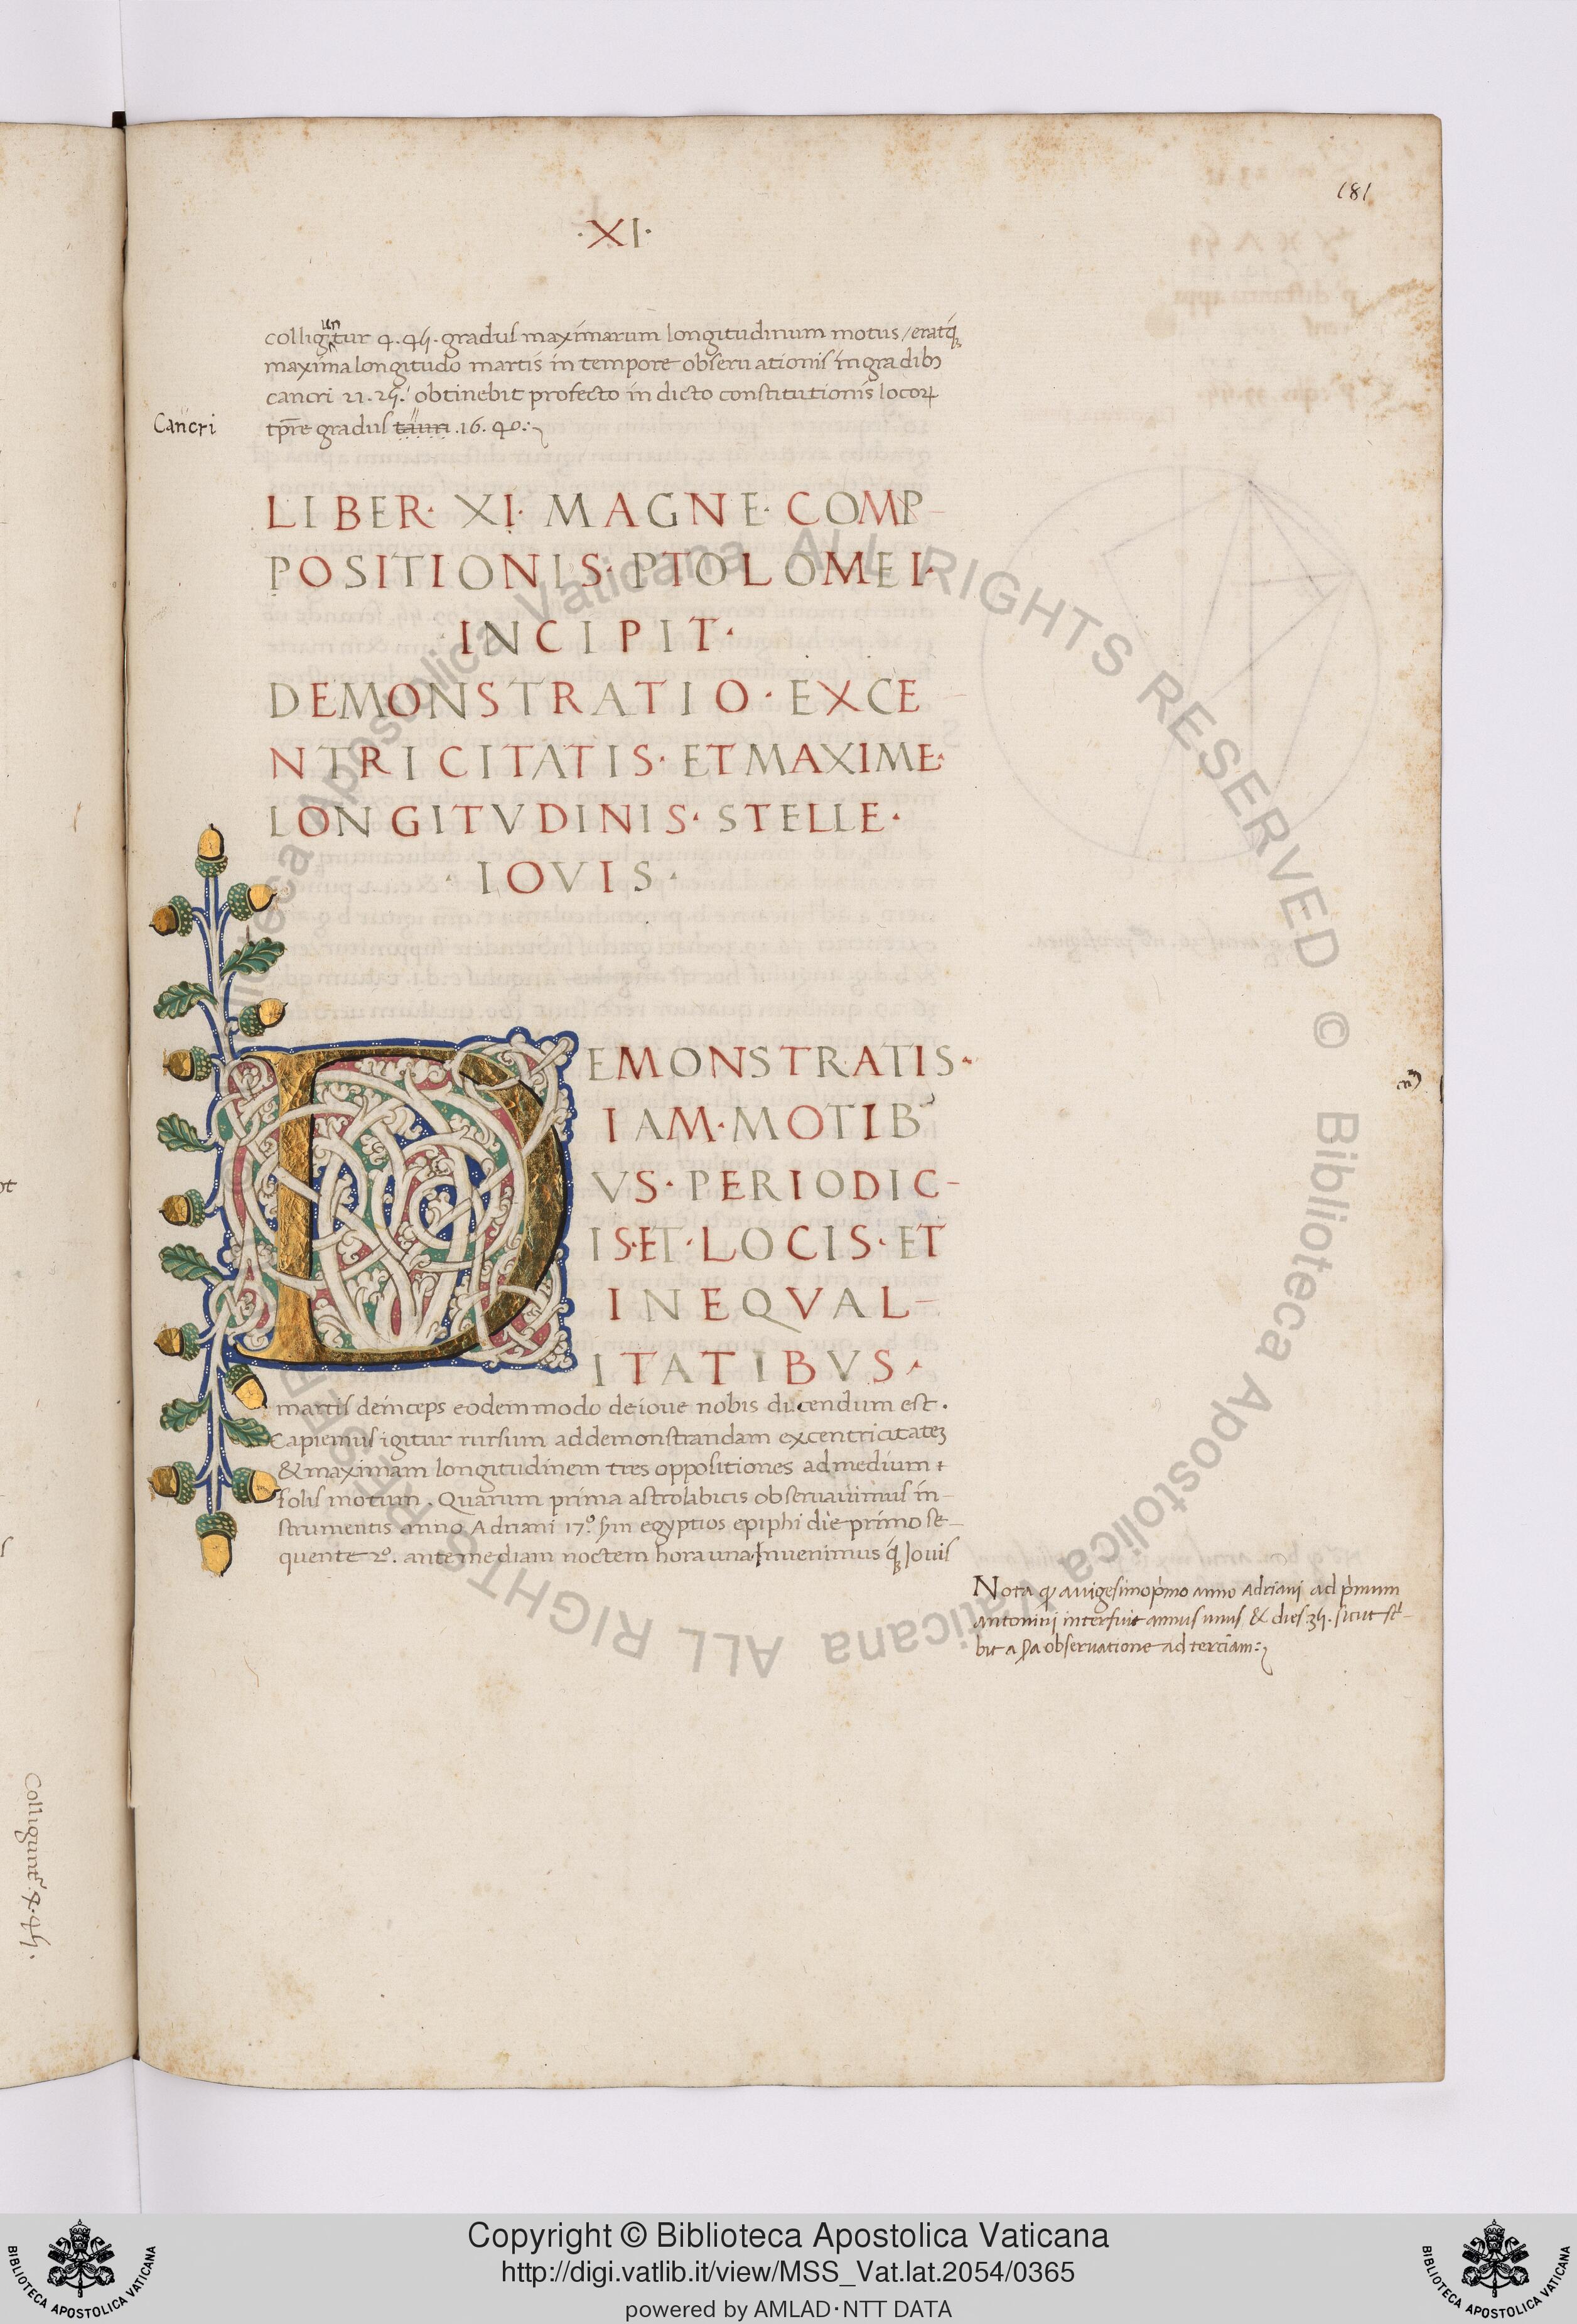 181
·XI·
un
colligitur 4.45. gradus maximarum longitudinum motus / eratq;
maxima longitudo martis in tempore obseruationis in gradib;
cancri 21.25. obtinebit profecto in dicto constitutionis locoꝝ
Cancri
tp̄re gradus tauri .16.40.
LIBER· XI· MAGNE· COMP-
POSITIONIS· PTOLOMEI·
INCIPIT·
DEMONSTRATIO· EXCE
NTRICITATIS· ET MAXIME·
LONGITVDINIS· STELLE·
·IOVIS·
DEMONSTRATIS·
IAM·MOTIB
VS·PERIODIC-
IS·ET·LOCIS·ET
INEQVAL-
ITATIBVS·
martis deinceps eodem modo de ioue nobis dicendum est.
Capiemus igitur rursum ad demonstrandam excentricitatez
& maximam longitudinem tres oppositiones ad medium
solis motum. Quarum prima astrolabicis obseruauimus in-
strumentis anno Adriani 17.º egyptios epiphi die primo se-
quente 2º. ante mediam noctem hora una Inuenimus q; Iouis
Nota ꝙ a uigesimo p̍mo anno Adriani ad p̍mum
antonini interfuit annus unus & dies 35. sicut sc̍-
bit a obseruatione ad terciam:
Colligunt̃ 4.45.
Copyright © Biblioteca Apostolica Vaticana
http://digi.vatlib.it/view/MSS_Vat.lat.2054/0365
powered by AMLAD·NTT DATA
BIBLIOTECA APOSTOLICA VATICANA
BIBLIOTECA APOSTOLICA VATICANA
© Biblioteca Apostolica Vaticana ALL RIGHTS RESERVED